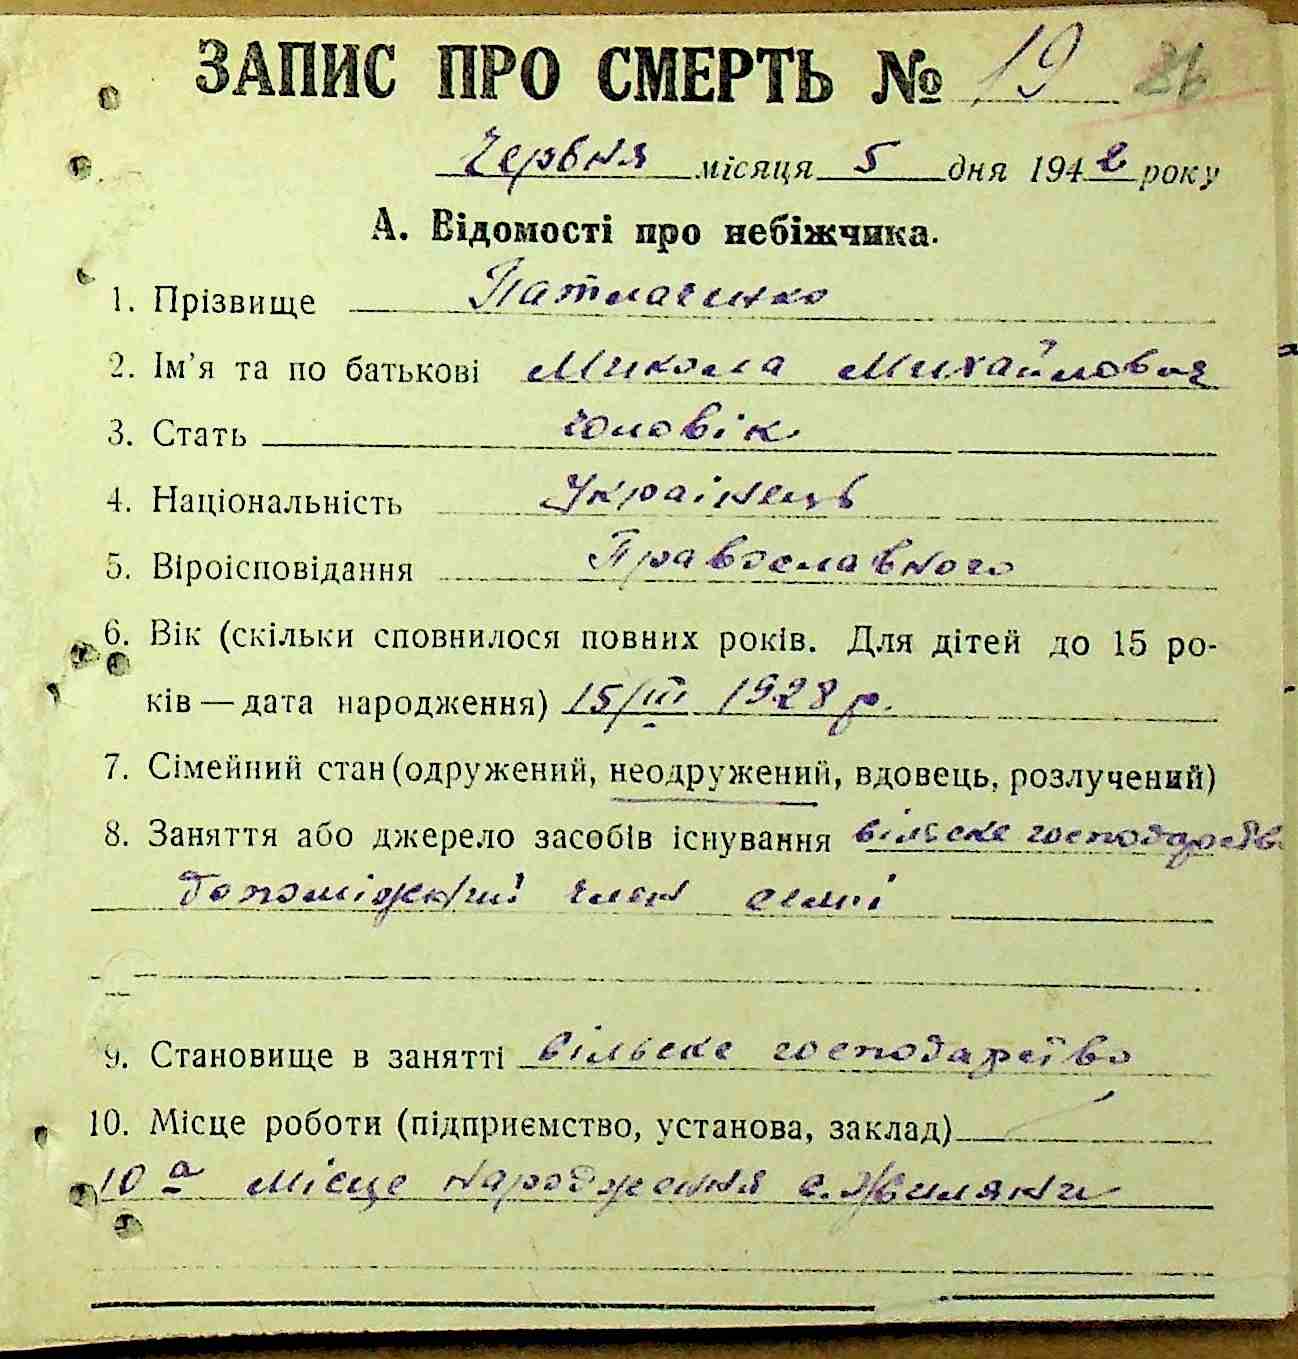 ЗАПИС ПРО СМЕРТЬ № 19 26
Червня місяця 5 дня 1942 року
А. Відомості про небіжчика.
1. Прізвище Патлаченко
2. Ім'я та по батькові Микола Михайлович
3. Стать чоловік
4. Національність Украінець
5. Віроісповідання Православного
6. Вік (скільки сповнилося повних років. Для дітей до 15 ро-
ків — дата народження) 15/III 1928 р.
7. Сімейний стан (одружений, неодружений, вдовець, розлучений)
8. Заняття або джерело засобів існування сільське господарство
допоміжний член семьі
9. Становище в занятті сільське господарство
10. Місце роботи (підприємство, установа, заклад)
10 а Місце народження с.